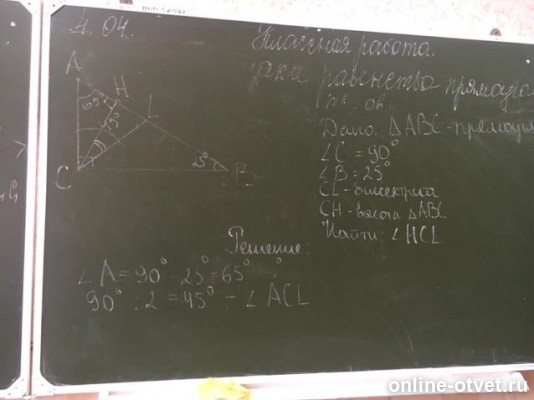 4.04.
Классная работа.
равенства
Дано: △ABC -
∠C = 90°
∠B = 25°
CL - биссектриса
CH - высота △ABC
Найти: ∠HCL
A
H
L
65°
C
25°
B
Решение:
∠A = 90° - 25° = 65°
90° : 2 = 45° - ∠ACL
online-otvet.ru